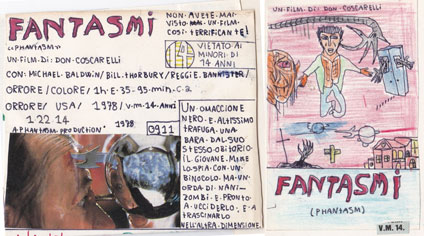 FANTASMI
("PHANTASM")
UN·FILM·DI: DON·COSCARELLI
NON·AVETE·MAI·
VISTO·MAI·UN·FILM·
COSI·TERRIFICANTE!
VIETATO AI
MINORI·DI
14 ANNI
CON: MICHAEL·BALDWIN/BILL·THORBURY/REGGIE·BANNISTER/
ORRORE/COLORE/1h·E·35-95·min·C.2
ORRORE/ USA/ 1978/V·M·14·ANNI
1 22 14
A·PHANTASM·PRODUCTION" 1978
0911
UN·OMACCIONE
NERO·E·ALTISSIMO
TRAFUGA·UNA
BARA·DAL·SUO
STESSO·OBITORIO
IL GIOVANE·MAIKE
LO·SPIA·CON·UN·
BINOCOLO·MA·UN'
ORDA·DI·NANI-
ZOMBI·E·PRONTA·
A·UCCIDERLO·E·A
TRASCINARLO
NELL'ALTRA·DIMENSIONE·
UN·FILM·DI·DON·COSCARELLI
FANTASMI
(PHANTASM)
V.M. 14.